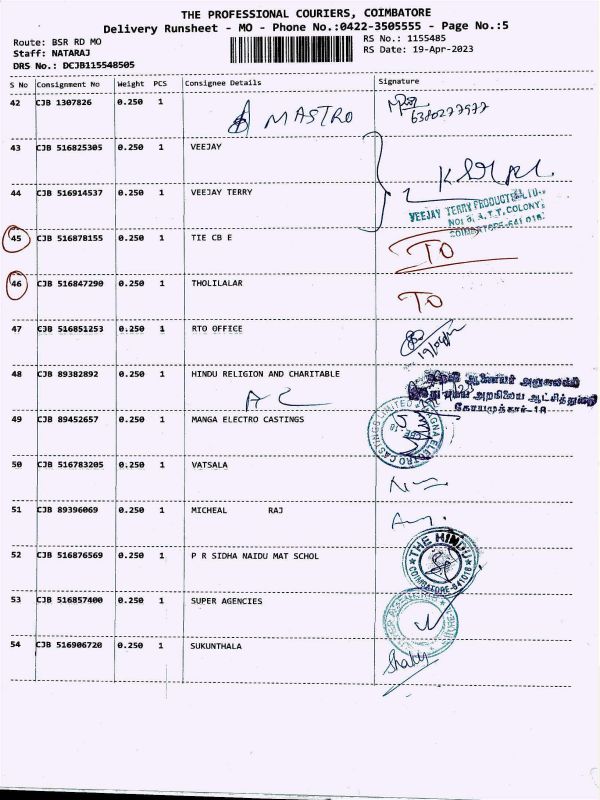 THE PROFESSIONAL COURIERS, COIMBATORE
Delivery Runsheet - MO - Phone No.:0422-3505555 - Page No.:5
Route: BSR RD MO
Staff: NATARAJ
DRS No.: DCJB115548505
RS No.: 1155485
RS Date: 19-Apr-2023
S No Consignment No Weight PCS Consignee Details Signature
42 CJB 1307826 0.250 1 MASTRO 6380277977
43 CJB 516825305 0.250 1 VEEJAY
44 CJB 516914537 0.250 1 VEEJAY TERRY
VEEJAY TERRY PRODUCTS LTD.,
NO: 8, A.T.T. COLONY,
COIMBATORE-641 018.
45 CJB 516878155 0.250 1 TIE CB E TO
46 CJB 516847290 0.250 1 THOLILALAR TO
47 CJB 516851253 0.250 1 RTO OFFICE
48 CJB 89382892 0.250 1 HINDU RELIGION AND CHARITABLE
A C
ஆணையர் அலுவலகம்
அறநிலைய ஆட்சித்துறை
கோயமுத்தூர்-18
49 CJB 89452657 0.250 1 MANGA ELECTRO CASTINGS
MAGNA ELECTRO CASTINGS LIMITED
CBE 18
50 CJB 516783205 0.250 1 VATSALA
51 CJB 89396069 0.250 1 MICHEAL RAJ
52 CJB 516876569 0.250 1 P R SIDHA NAIDU MAT SCHOL
THE HINDU
COIMBATORE-641018
53 CJB 516857400 0.250 1 SUPER AGENCIES
54 CJB 516906720 0.250 1 SUKUNTHALA